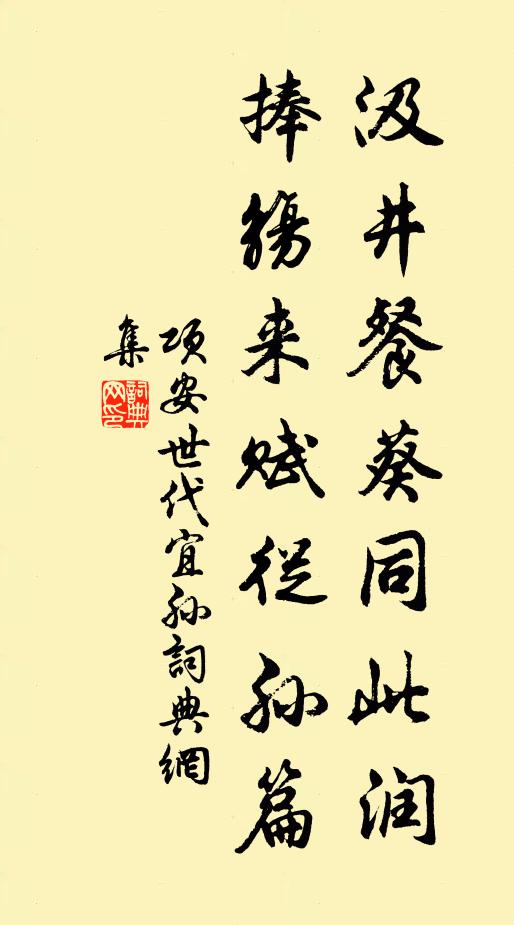 汲井餐葵同此润
捧觞来赋从孙篇
项安世代宜孙詞典網
集
詞典网印